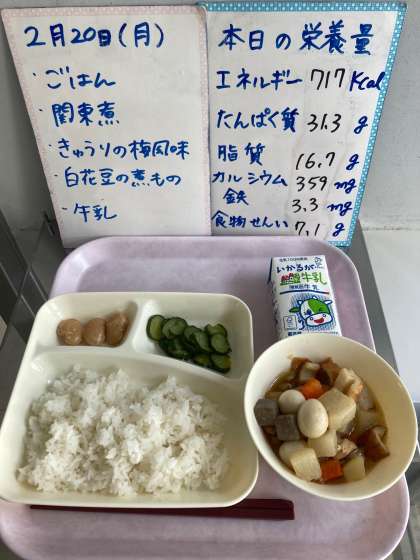 2月20日(月)
・ごはん
・関東煮
・きゅうりの梅風味
・白花豆の煮もの
・牛乳
本日の栄養量
エネルギー 717 Kcal
たんぱく質 31.3 g
脂質 16.7 g
カルシウム 359 mg
鉄 3.3 mg
食物せんい 7.1 g
いかるが
牛乳